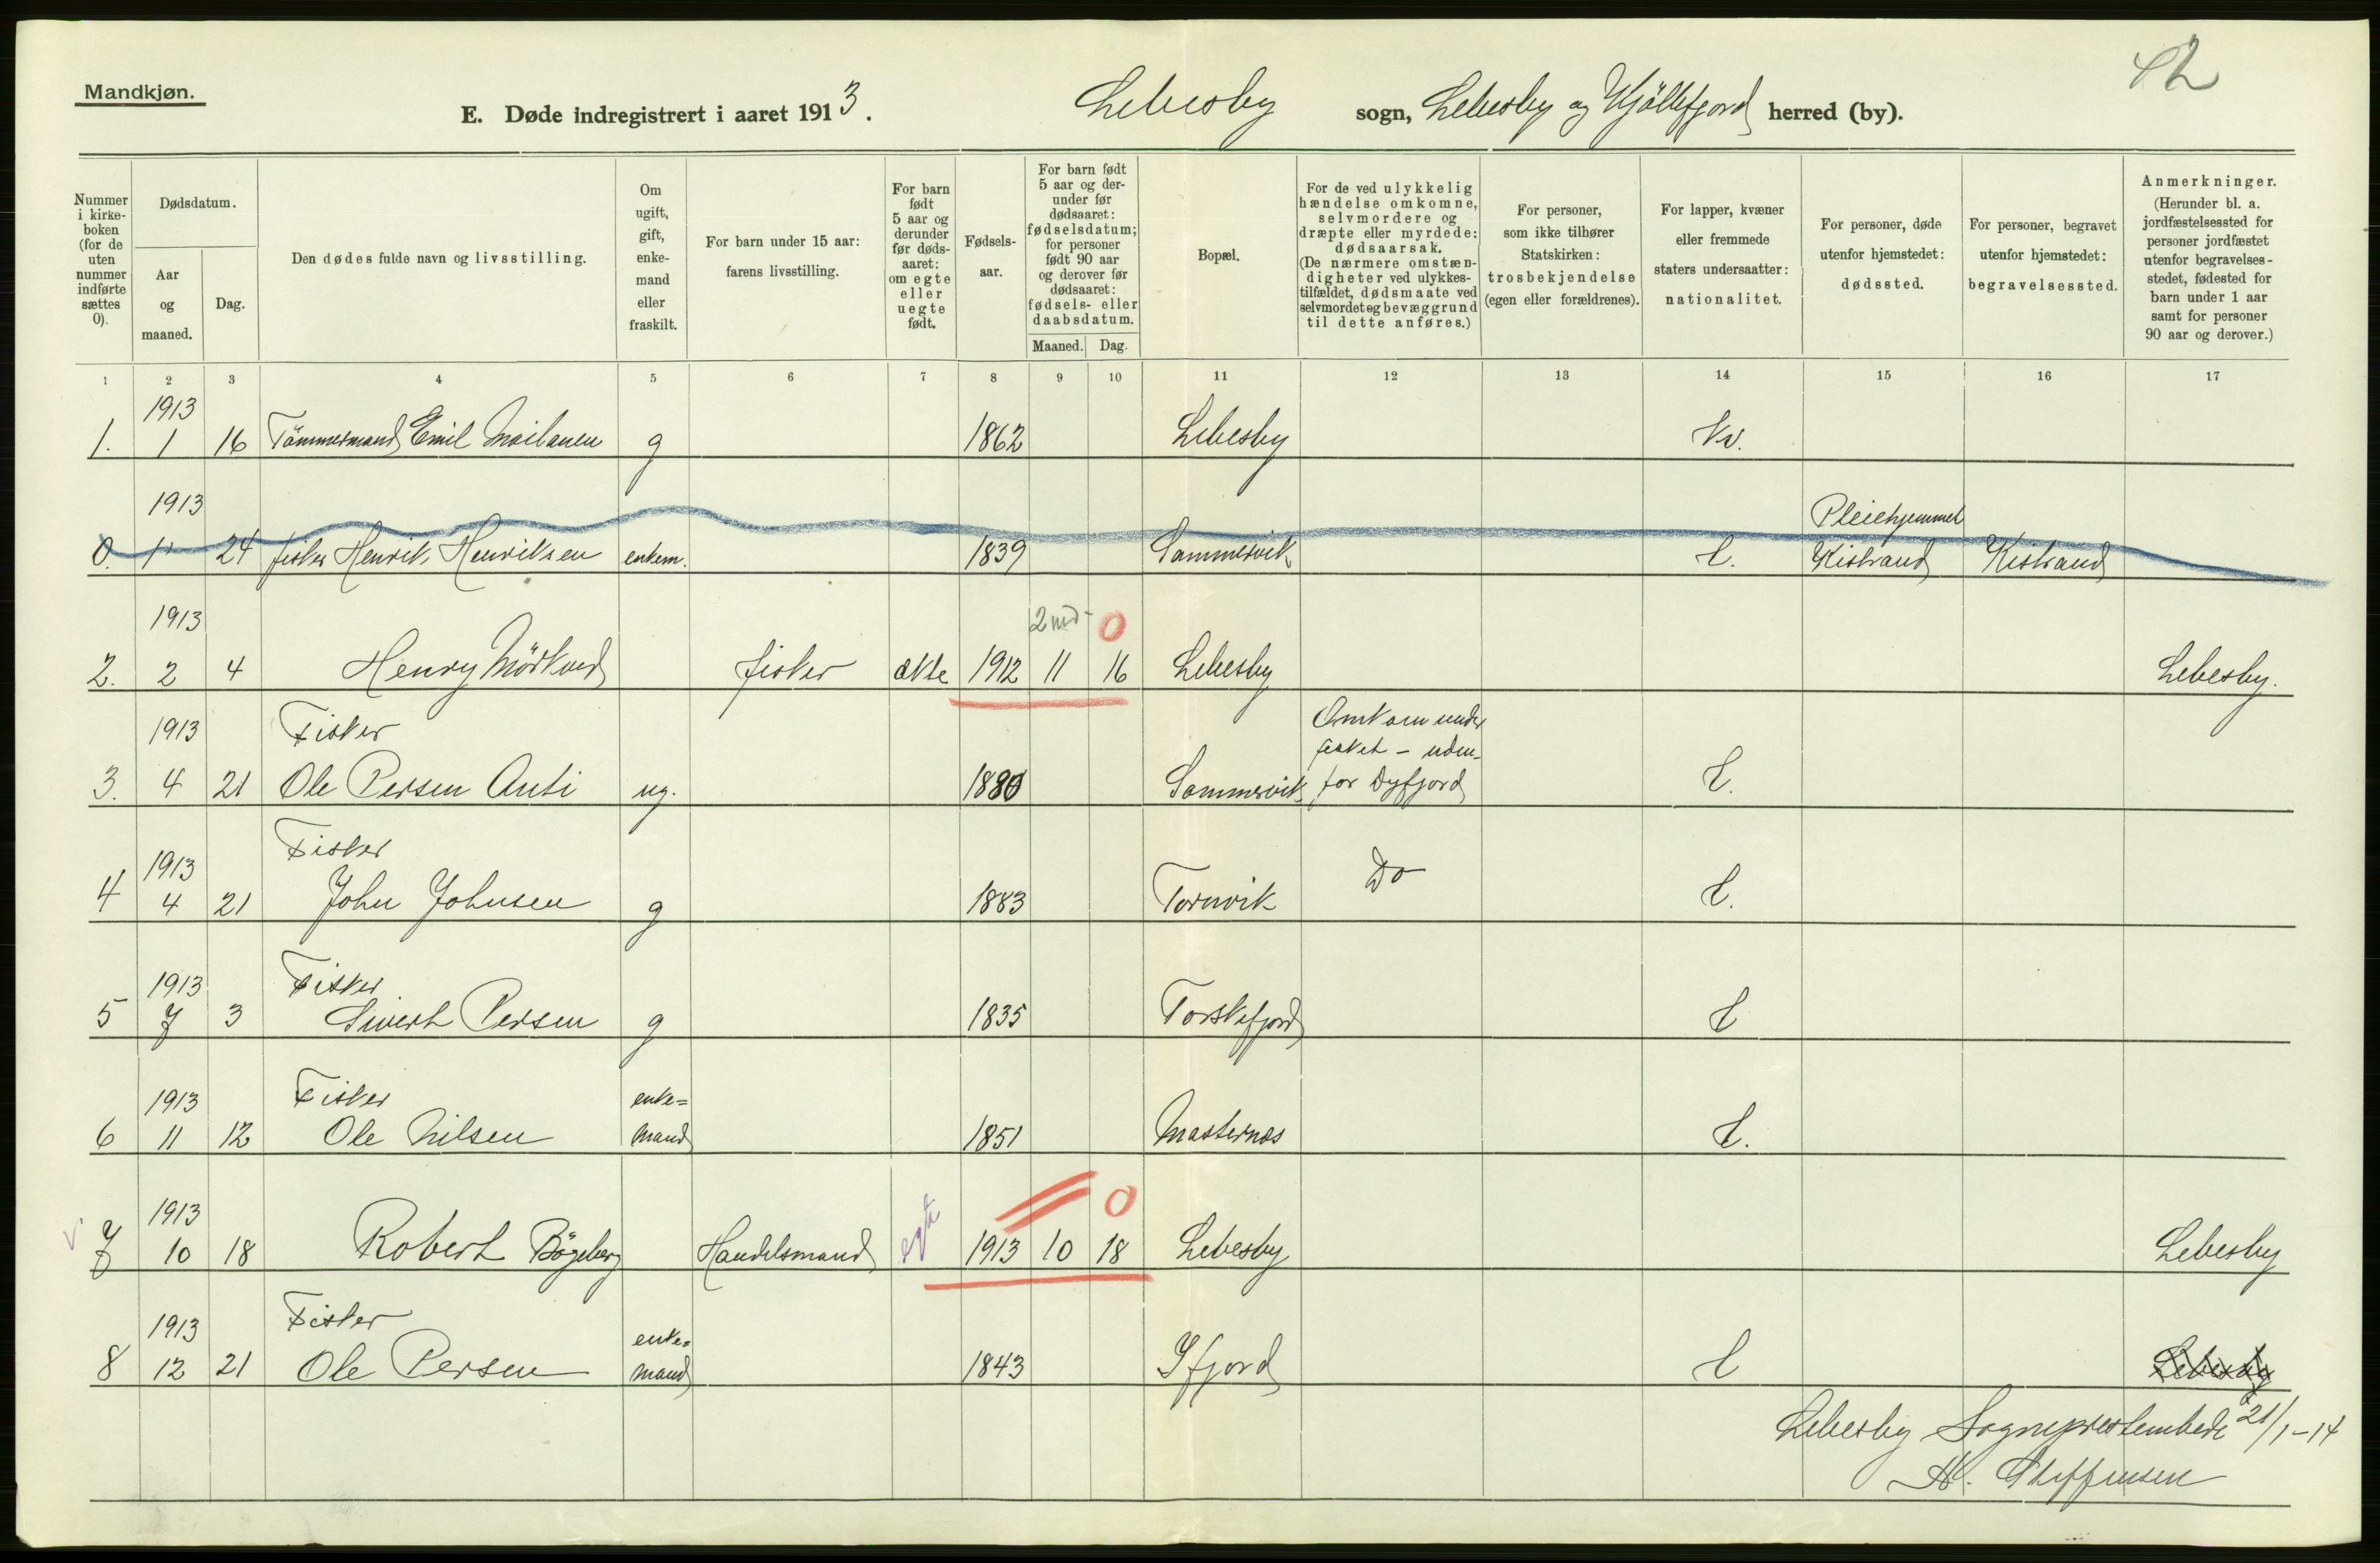 42
Mandkjøn.
E. Døde indregistrert i aaret 1913. Lebesby sogn, Lebesby og Kjöllefjord herred (by).
Nummer i kirke- boken (for de uten nummer indførte sættes 0).
Dødsdatum.
Aar og maaned.
Dag.
Den dødes fulde navn og livsstilling.
Om ugift, gift, enke- mand eller fraskilt.
For barn under 15 aar: farens livsstilling.
For barn født 5 aar og derunder før døds- aaret: om egte eller uegte født.
Fødsels- aar.
For barn født 5 aar og der- under før dødsaaret: fødselsdatum; for personer født 90 aar og derover før dødsaaret: fødsels- eller daabsdatum.
Maaned. Dag.
Bopæl.
For de ved ulykkelig hændelse omkomne, selvmordere og dræpte eller myrdede: dødsaarsak. (De nærmere omstæn- digheter ved ulykkes- tilfældet, dødsmaate ved selvmordet og bevæggrund til dette anføres.)
For personer, som ikke tilhører Statskirken: trosbekjendelse (egen eller forældrenes).
For lapper, kvæner eller fremmede staters undersaatter: nationalitet.
For personer, døde utenfor hjemstedet: dødssted.
For personer, begravet utenfor hjemstedet: begravelsessted.
Anmerkninger. (Herunder bl. a. jordfæstelsessted for personer jordfæstet utenfor begravelses- stedet, fødested for barn under 1 aar samt for personer 90 aar og derover.)
1 2 3 4 5 6 7 8 9 10 11 12 13 14 15 16 17
1913
1. 1 16 Tömmermand Emil Mailanen g 1862 Lebesby Kv.
1913 Pleiehjemmet
0. 1 24 fisker Henrik Henriksen enkem. 1839 Sammervik L. Kistrand Kistrand
1913 2 md 0
2. 2 4 Henry Mörkved fisker ekte 1912 11 16 Lebesby Lebesby.
1913 Fisker Omkom under
fisket - uden-
3. 4 21 Ole Persen Anti ug. 1880 Sammervik for Dyfjord L.
Fisker
1913 Do
4 4 21 John Johnsen g 1883 Tornvik L.
1913 Fisker
5 7 3 Sivert Persen g 1835 Torskefjord L
1913 Fisker enke=
6 11 12 Ole Nilsen mand 1851 Masternes L.
1913 0
7 10 18 Robert Bögeberg Handelsmand egte 1913 10 18 Lebesby Lebesby
1913 Fisker enke=
8 12 21 Ole Persen mand 1843 Ifjord L Lebesby
Lebesby Sogneprestembede 21/1-14
Steffensen